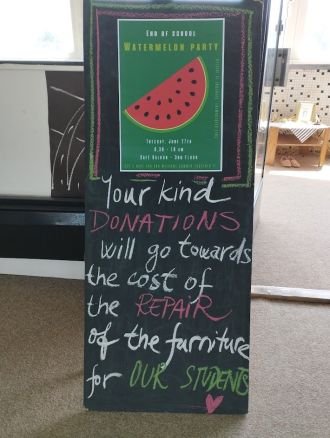 END OF SCHOOL
WATERMELON PARTY
TUESDAY, JUNE 27TH
Your kind
DONATIONS
will go towards
the cost of
the REPAIR
of the furniture
for OUR STUDENTS